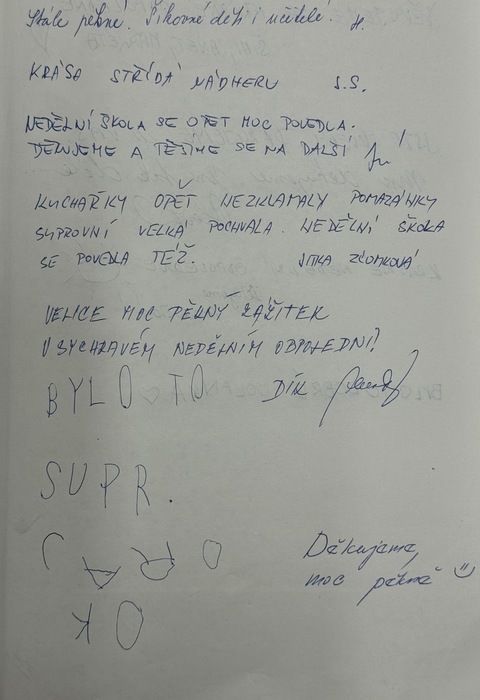 Stále pěkné. Šikovné děti i učitelé.
KRÁSA STŘÍDÁ NÁDHERU J.S.
NEDĚLNÍ ŠKOLA SE OPĚT MOC POVEDLA.
DĚKUJEME A TĚŠÍME SE NA DALŠÍ !
KUCHAŘKY OPĚT NEZKLAMALY POMAZÁNKY
SUPROVNÍ VELKÁ POCHVALA. NEDĚLNÍ ŠKOLA
SE POVEDLA TÉŽ. JITKA ZLOMKOVÁ
VELICE MOC PĚKNÝ ZÁŽITEK
V SYCHRAVÉM NEDĚLNÍM ODPOLEDNI!
BYLO TO DÍK
SUPR.
Děkujeme,
moc pěkné